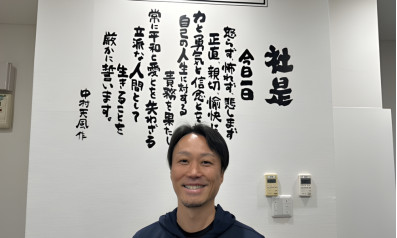 社是
今日一日
怒らず、怖れず、悲しまず
正直、親切、愉快に
力と勇気と信念とを
自己の人生に対する
責務を果たし
常に平和と愛とを失わざる
立派な人間として
生きることを
厳かに誓います。
中村天風 作